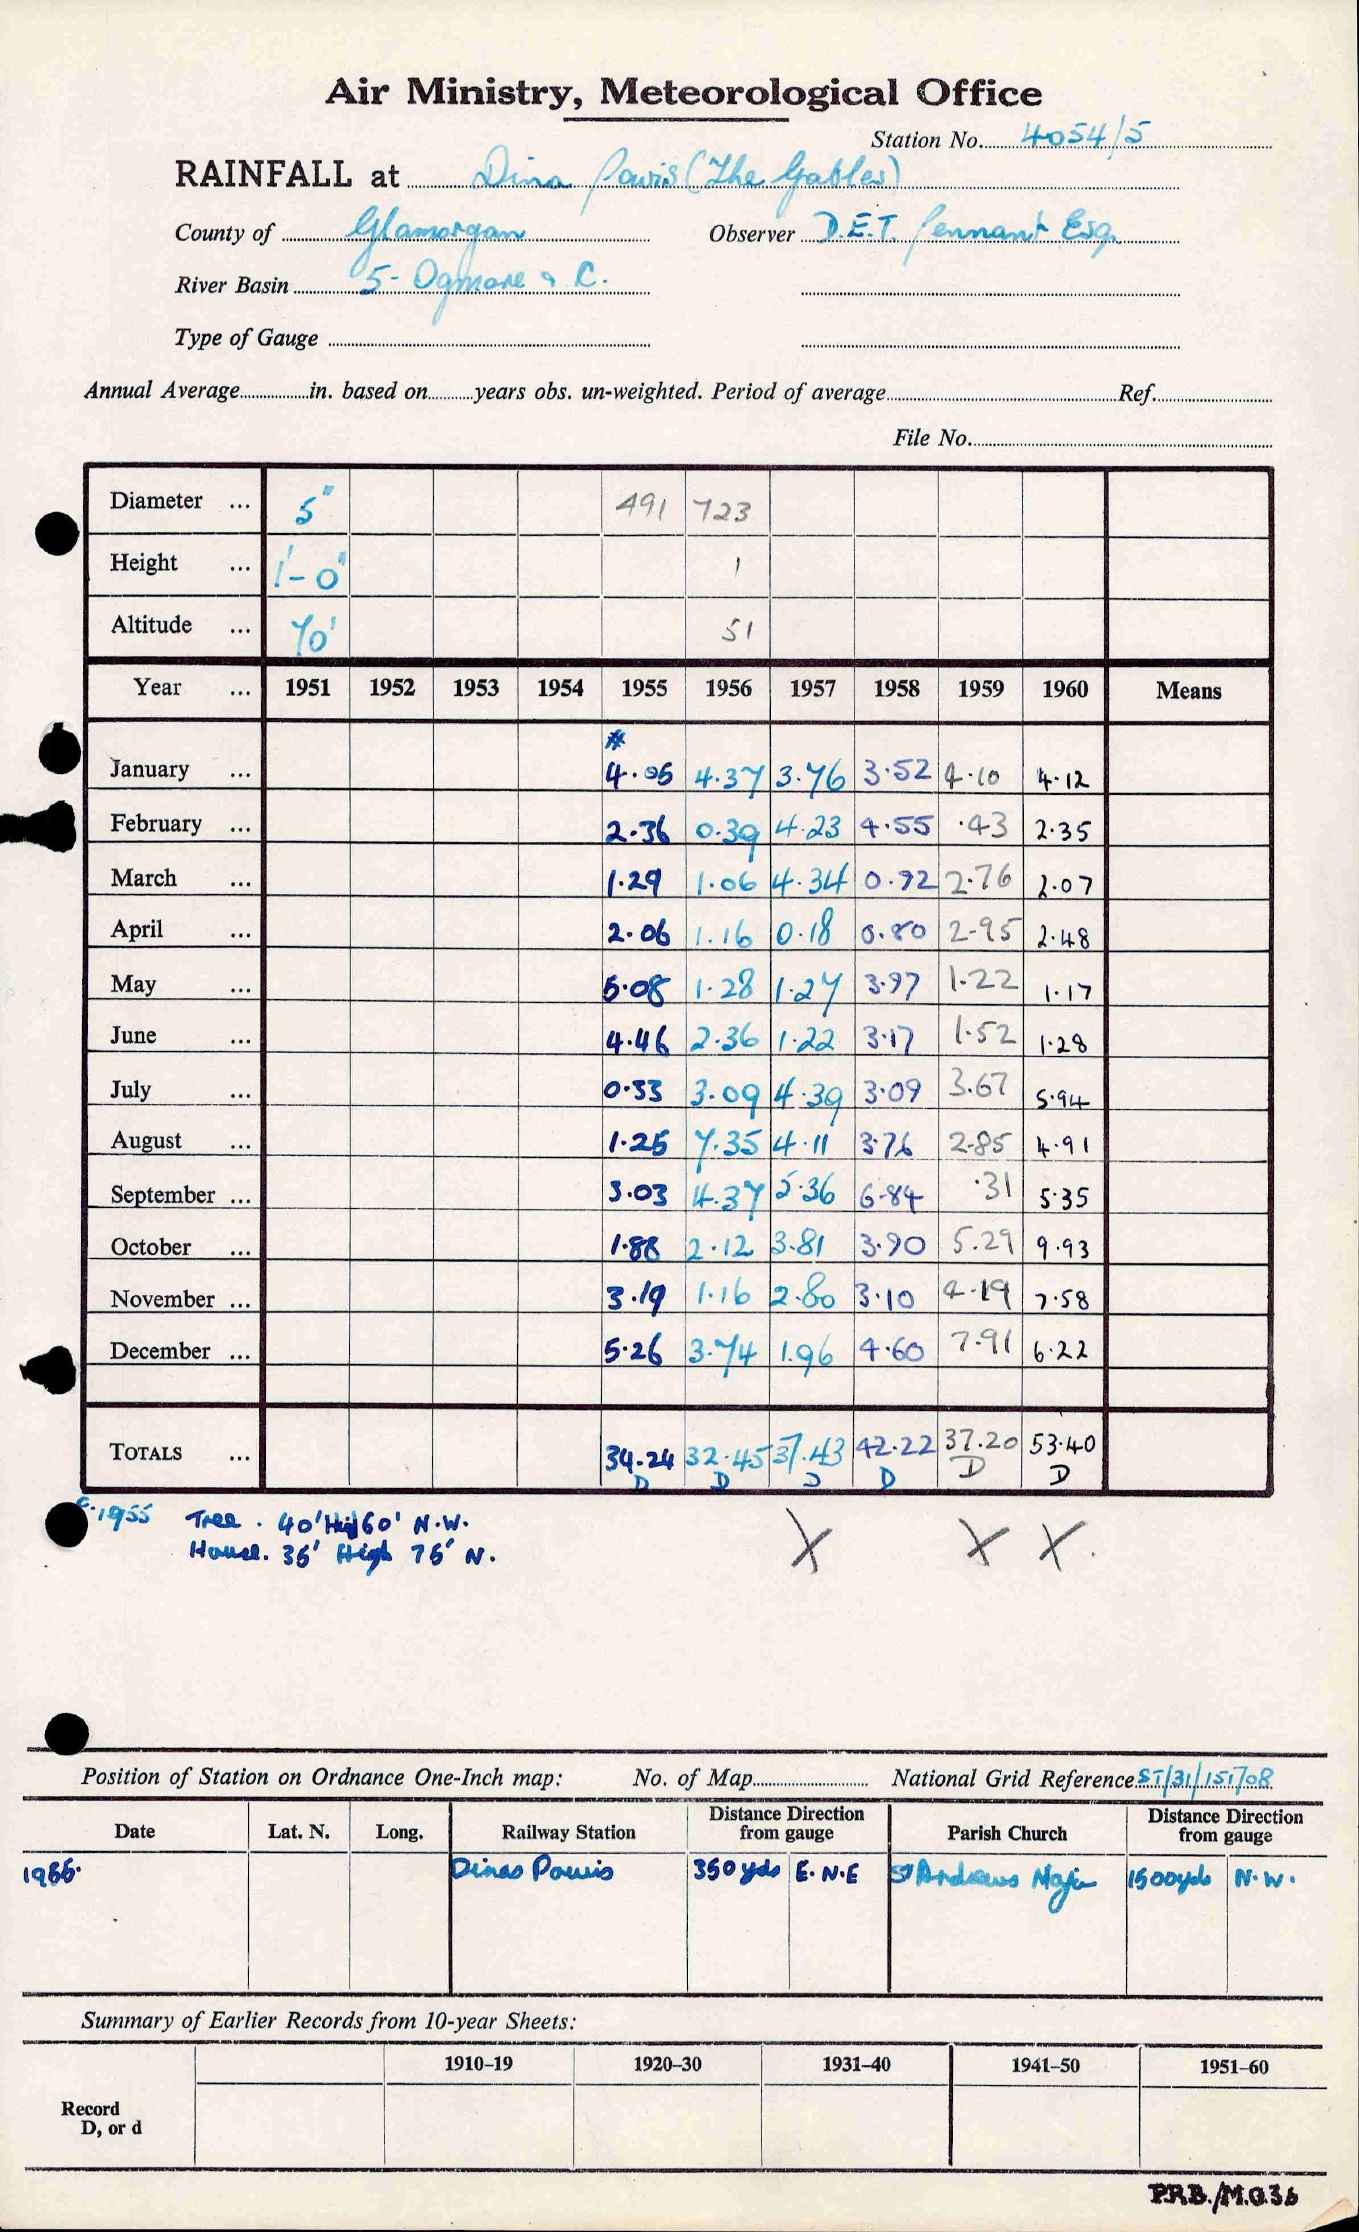 Air Ministry, Meteorological Office
Station No. 4054/5
RAINFALL at Dina Powis (The Gables)
County of Glamorgan Observer D.E.T. Pennant Esq.
River Basin 5- Ogmore & C.
Type of Gauge
Annual Average in. based on years obs. un-weighted. Period of average Ref.
File No.
Diameter ... 5" 491 723
Height ... 1'-0" 1
Altitude ... 70' 51
Year ... 1951 1952 1953 1954 1955 1956 1957 1958 1959 1960 Means
#
January ... 4.05 4.37 3.76 3.52 4.10 4.12
February ... 2.36 0.39 4.23 4.55 .43 2.35
March ... 1.29 1.06 4.34 0.92 2.76 2.07
April ... 2.06 1.16 0.18 0.80 2.95 2.48
May ... 5.08 1.28 1.27 3.97 1.22 1.17
June ... 4.46 2.36 1.22 3.17 1.52 1.28
July ... 0.33 3.09 4.39 3.09 3.67 5.94
August ... 1.25 7.35 4.11 3.76 2.85 4.91
September ... 3.03 4.37 5.36 6.84 .31 5.35
October ... 1.88 2.12 3.81 3.90 5.29 9.93
November ... 3.19 1.16 2.80 3.10 4.19 7.58
December ... 5.26 3.74 1.96 4.60 7.91 6.22
TOTALS ... 34.24 32.45 37.43 42.22 37.20 53.40
D D D D D D
c.1955 Tree. 40' High 60' N.W. X X X.
House. 35' High 75' N.
Position of Station on Ordnance One-Inch map: No. of Map National Grid Reference ST/31/151708
Date Lat. N. Long. Railway Station Distance Direction from gauge Parish Church Distance Direction from gauge
1955. Dinas Powis 350 yds E.N.E St Andrews Major 1500yds N.W.
Summary of Earlier Records from 10-year Sheets:
1910–19 1920–30 1931–40 1941–50 1951–60
Record
D, or d
P.R.B./M.O.36